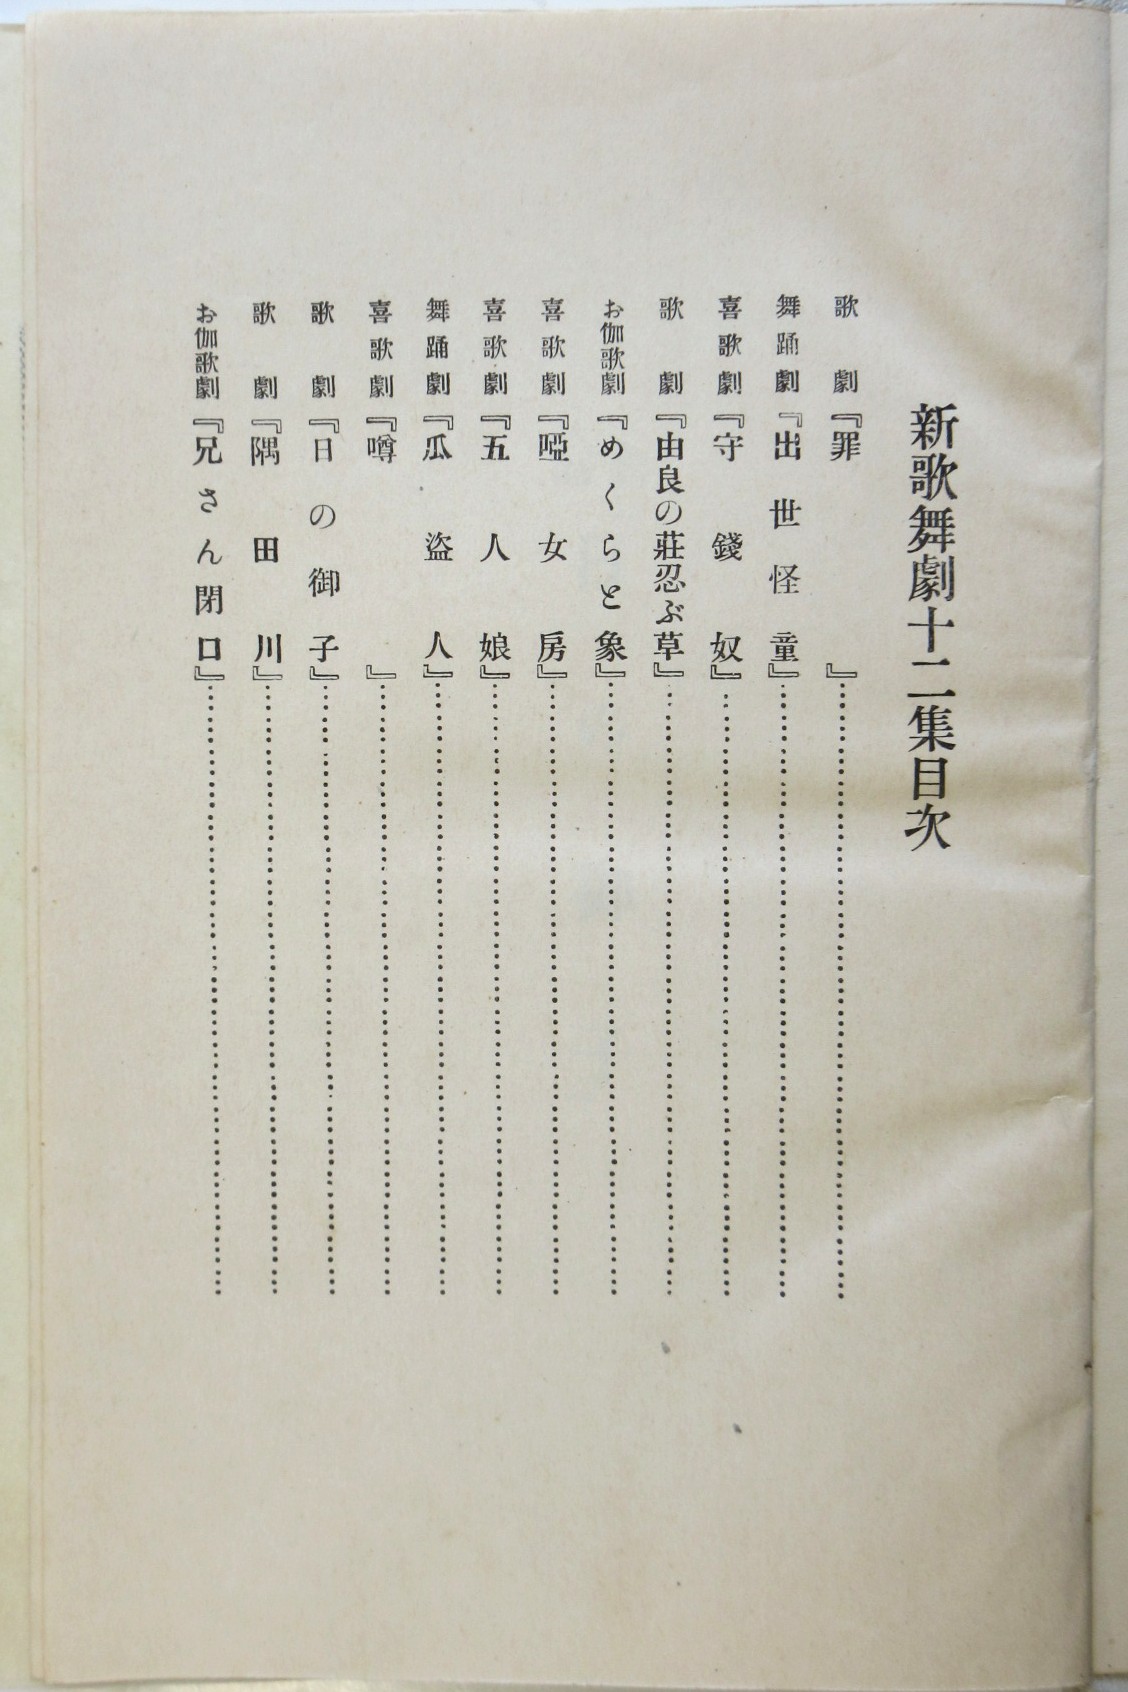 新歌舞劇十二集目次
歌劇『罪』
舞踊劇『出世怪童』
喜歌劇『守錢奴』
歌劇『由良の莊忍ぶ草』
お伽歌劇『めくらと象』
喜歌劇『啞女房』
喜歌劇『五人娘』
舞踊劇『瓜盗人』
喜歌劇『噂』
歌劇『日の御子』
歌劇『隅田川』
お伽歌劇『兄さん閉口』